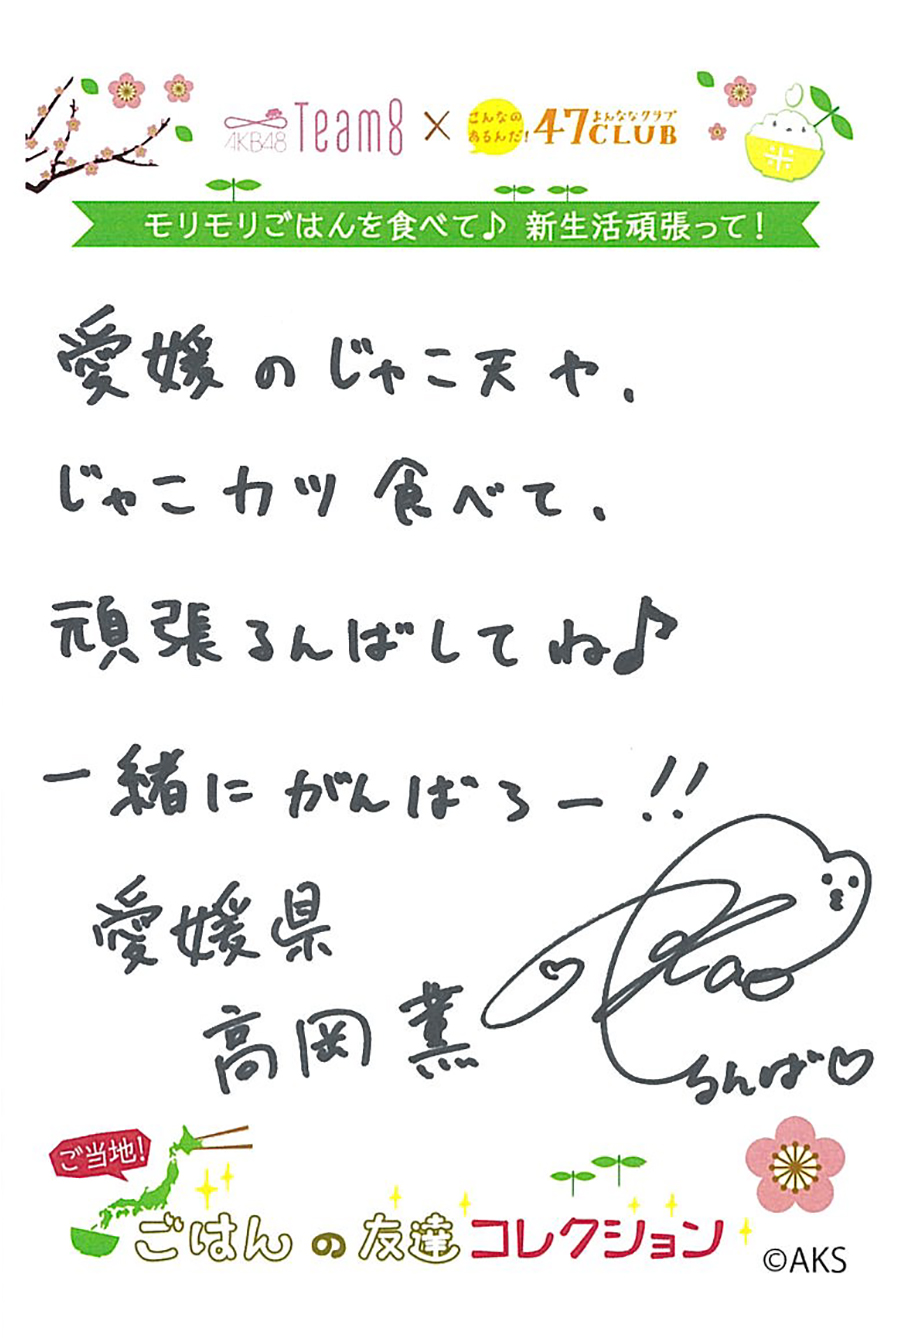 AKB48 Team8 × こんなのあるんだ! 47CLUB よんななクラブ
モリモリごはんを食べて♪ 新生活頑張って!
米
愛媛のじゃこ天や、
じゃこカツ食べて、
頑張るんばしてね♪
一緒にがんばろー!!
愛媛県
高岡薫
Kao
るんば♡
ご当地!
ごはんの友達コレクション
©AKS